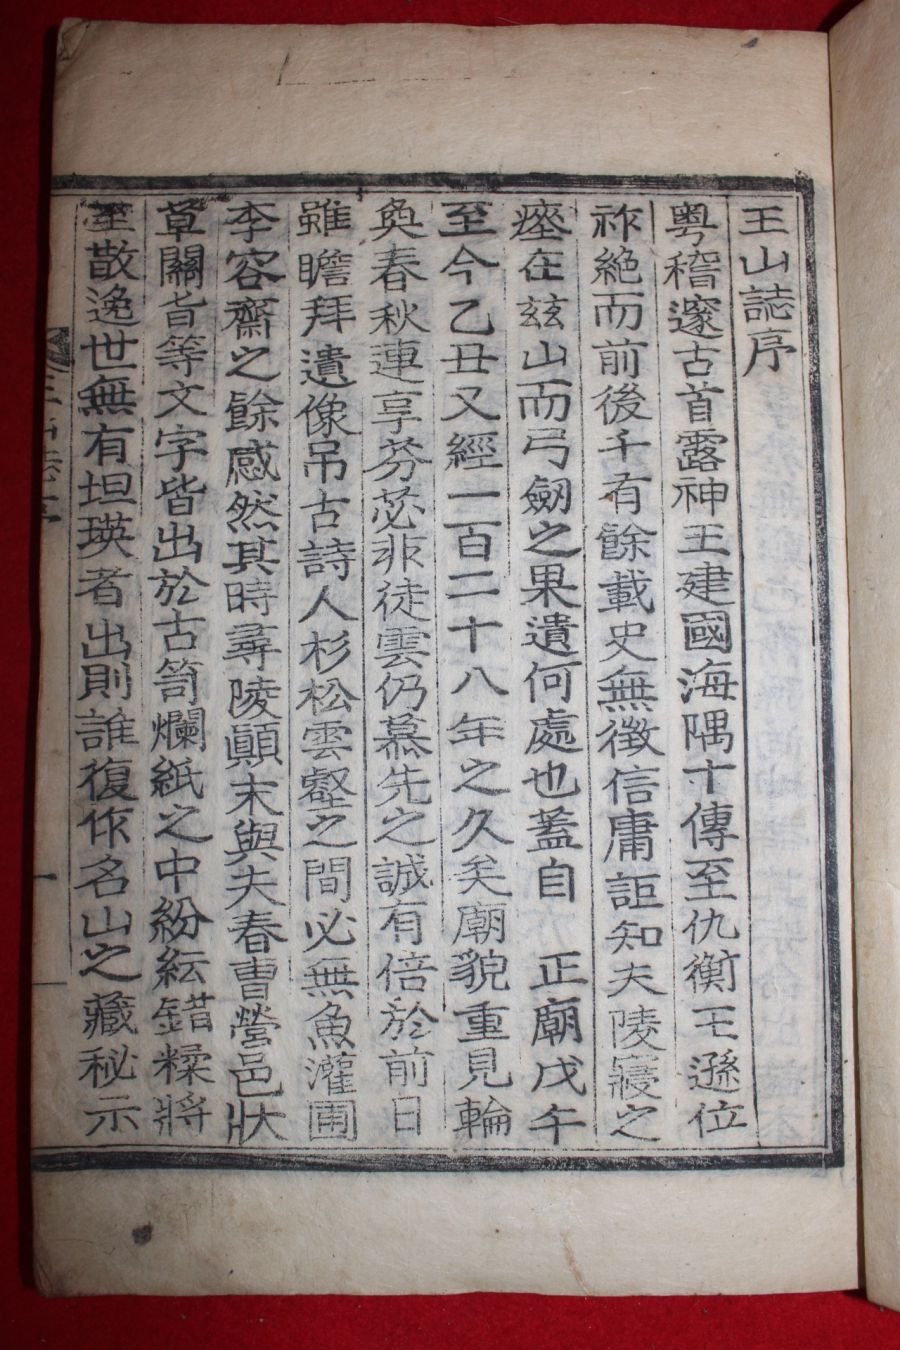 王山誌序
粤稽邃古首露神王建國海隅十傳至仇衡王遜位
祚絶而前後千有餘載史無徵信庸詎知夫陵寢之
瘗在玆山而弓劒之果遺何處也蓋自 正廟戊午
至今乙丑又經一百二十八年之久矣廟貌重見輪
奐春秋連享芬苾非徒雲仍慕先之誠有倍於前日
雖瞻拜遺像吊古詩人杉松雲壑之間必無魚灌圃
李容齋之餘感然其時尋陵顚末與夫春曹營邑狀
草關旨等文字皆出於古笥爛紙之中紛紜錯糅將
至散逸世無有坦瑛者出則誰復作名山之藏秘示
一